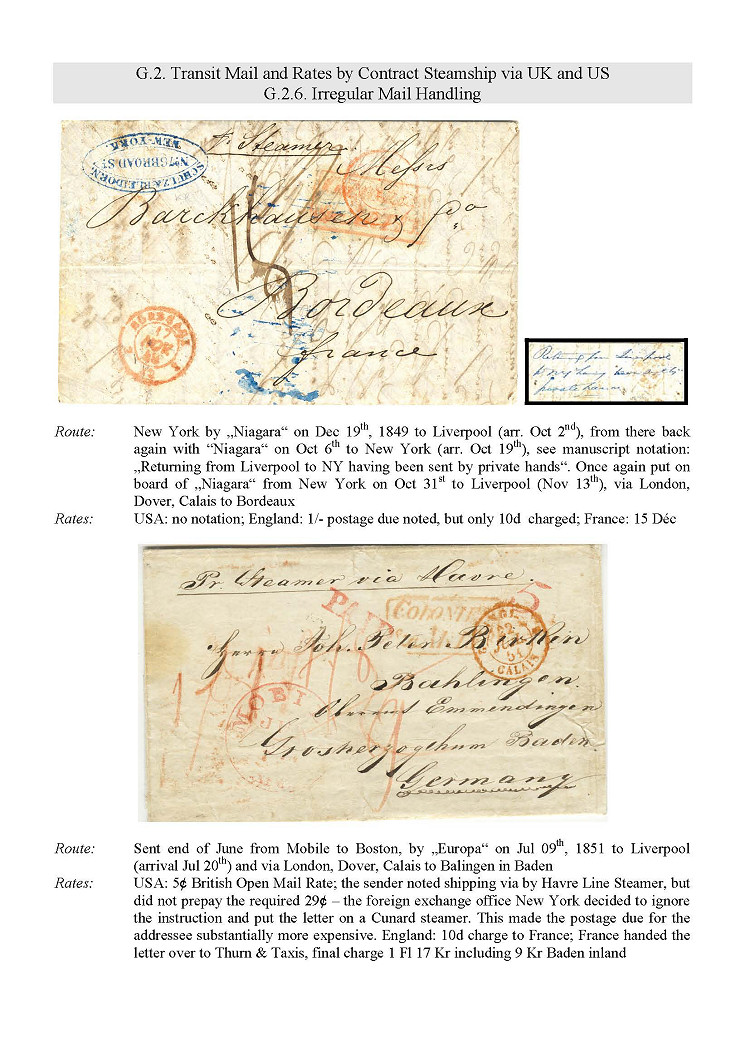 G.2. Transit Mail and Rates by Contract Steamship via UK and US
G.2.6. Irregular Mail Handling
SCHULZ & BLEIDORN.
No 76 BROAD ST.
NEW-YORK.
pr Steamer
Messrs
Barckhausen & Co
Bordeaux
france
BORDEAUX
Returning from Liverpool
to NY having been sent by
private hands
Route: New York by „Niagara“ on Dec 19th, 1849 to Liverpool (arr. Oct 2nd), from there back
again with “Niagara“ on Oct 6th to New York (arr. Oct 19th), see manuscript notation:
„Returning from Liverpool to NY having been sent by private hands“. Once again put on
board of „Niagara“ from New York on Oct 31st to Liverpool (Nov 13th), via London,
Dover, Calais to Bordeaux
Rates: USA: no notation; England: 1/- postage due noted, but only 10d  charged; France: 15 Déc
Pr. Steamer via Havre.
PAID
5
COLONIES
CALAIS
Herrn Joh. Peter
Bahlingen.
Oberamt Emmendingen
Grosherzogthum Baden
Germany
MOBI
Route: Sent end of June from Mobile to Boston, by „Europa“ on Jul 09th, 1851 to Liverpool
(arrival Jul 20th) and via London, Dover, Calais to Balingen in Baden
Rates: USA: 5¢ British Open Mail Rate; the sender noted shipping via by Havre Line Steamer, but
did not prepay the required 29¢ – the foreign exchange office New York decided to ignore
the instruction and put the letter on a Cunard steamer. This made the postage due for the
addressee substantially more expensive. England: 10d charge to France; France handed the
letter over to Thurn & Taxis, final charge 1 Fl 17 Kr including 9 Kr Baden inland